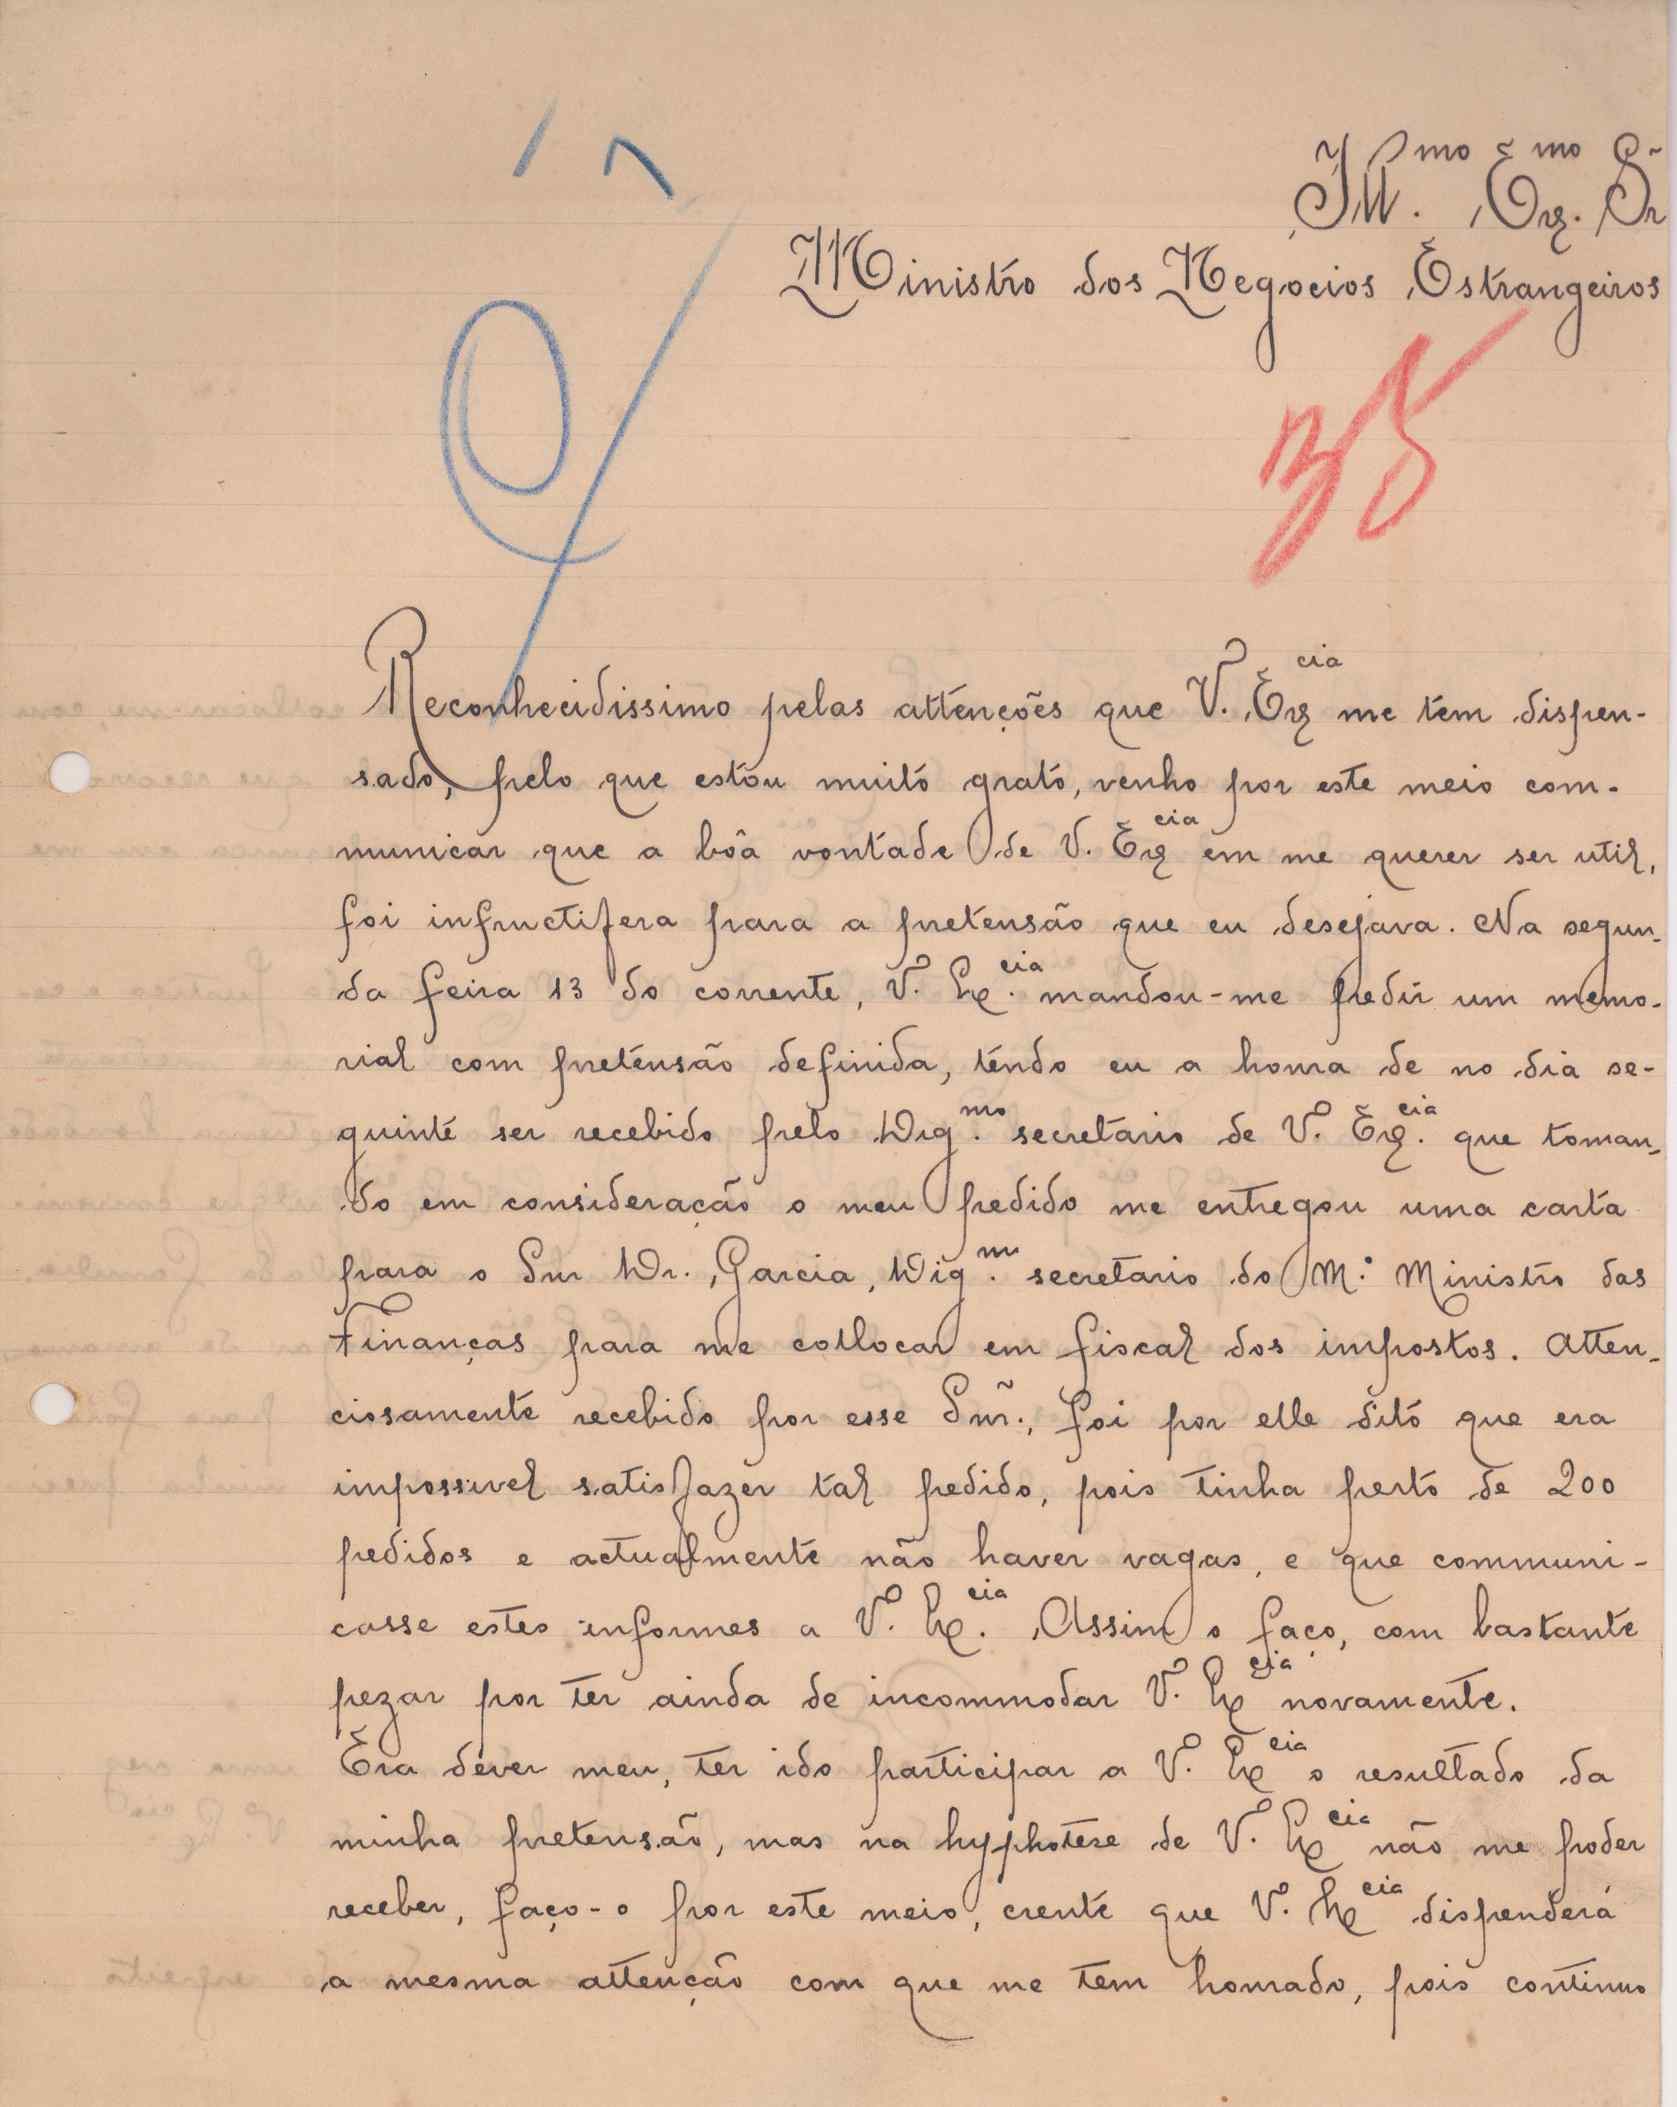 Ill.mo Ex.mo Sñr
Ministro dos Negocios Estrangeiros
35
Reconhecidissimo pelas attenções que V. Ex.cia me tem dispen-
sado, pelo que estou muito grato, venho por este meio com-
municar que a bôa vontade de V. Ex.cia em me querer ser util,
foi infructifera para a pretensão que eu desejava. Na segun-
da feira 13 do corrente, V. Ex.cia mandou-me pedir um memo-
rial com pretensão definida, tendo eu a honra de no dia se-
guinte ser recebido pelo Dig.mo secretario de V. Ex.cia que toman-
do em consideração o meu pedido me entregou uma carta
para o Snr Dr. Garcia, Dig.mo secretario do M.º Ministro das
Finanças para me collocar em fiscal dos impostos. Atten-
ciosamente recebido por esse Sñr., foi por elle dito que era
impossivel satisfazer tal pedido, pois tinha perto de 200
pedidos e actualmente não haver vagas, e que communi-
casse estes informes a V. Ex.cia Assim o faço, com bastante
pezar por ter ainda de incommodar V. Ex.cia novamente.
Era dever meu, ter ido participar a V. Ex.cia o resultado da
minha pretensão, mas na hyphotese de V. Ex.cia não me poder
receber, faço-o por este meio, crente que V. Ex.cia dispenderá
a mesma attenção com que me tem honrado, pois continuo